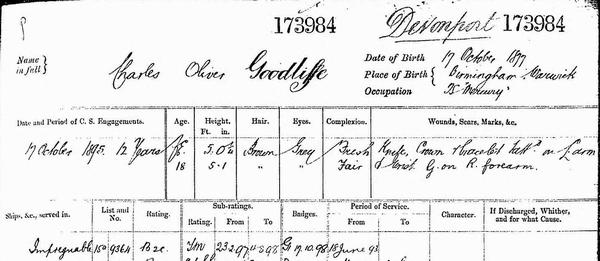 173984 Devonport 173984
Name in full } Charles Oliver Goodliffe
Date of Birth 17 October 1877
Place of Birth { Birmingham, Warwick
Occupation
Date and Period of C. S. Engagements. Age. Height. Ft. in. Hair. Eyes. Complexion. Wounds, Scars, Marks, &c.
17 October 1895. 12 Years 5. 0½ Brown Grey Fresh Knife, Crown & bracelet on L arm
18 5. 1 " " Fair & Wrist. G. on R. forearm.
Ships, &c., served in. List and No. Rating. Sub-ratings. Rating. From To Badges. Period of Service. From To Character. If Discharged, Whither, and for what Cause.
Impregnable 15 9364 B 2c. 23 2 97 G 17.10.98 15 June 93